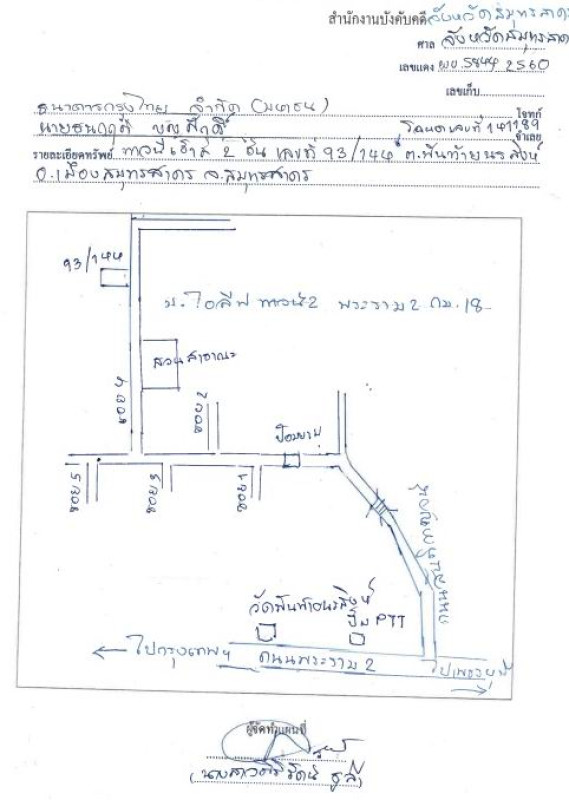 สำนักงานบังคับคดี จังหวัดสมุทรสาคร
ศาล จังหวัดสมุทรสาคร
เลขแดง ผบ.5844 2560
เลขเก็บ
ธนาคารกรุงไทย จำกัด (มหาชน) โจทก์
นายธนกฤติ โฉนดเลขที่ 141189 จำเลย
รายละเอียดทรัพย์ ทาวน์เฮ้าส์ 2 ชั้น เลขที่ 93/144 ต.พันท้ายนรสิงห์
อ.เมืองสมุทรสาคร จ.สมุทรสาคร
93/144
ม.โอลีฟ ทาวน์2 พระราม2 กม.18
สวนสาธารณะ
ซอย 4
ซอย 2
ป้อมยาม
ซอย 5
ซอย 3
ซอย 1
วัดพันท้ายนรสิงห์
ปั๊ม PTT
ไปกรุงเทพฯ
ถนนพระราม 2
ผู้จัดทำแผนที่